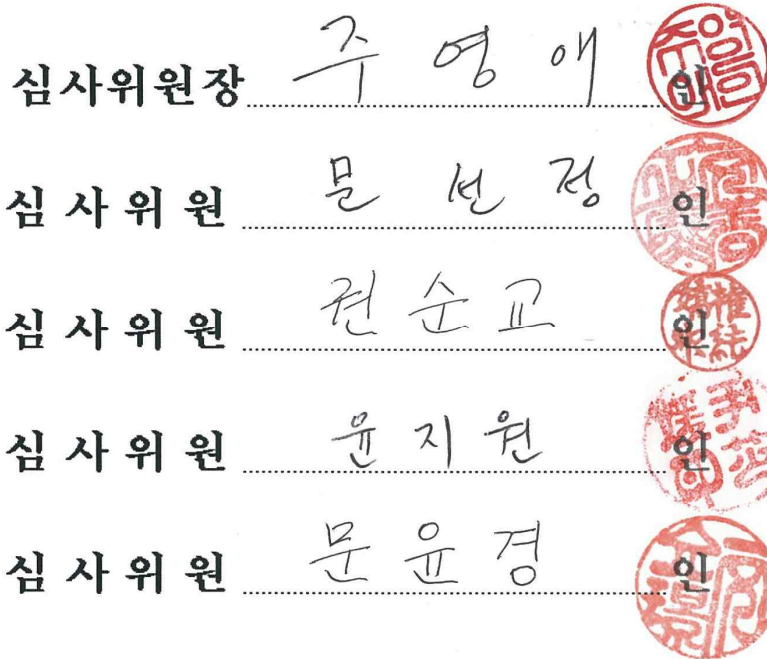 심사위원장 주영애 인
심사위원 문선정 인
심사위원 권순교 인
심사위원 윤지원 인
심사위원 문윤경 인